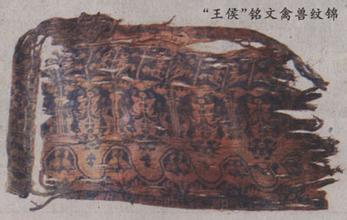 “王侯”铭文禽兽纹锦